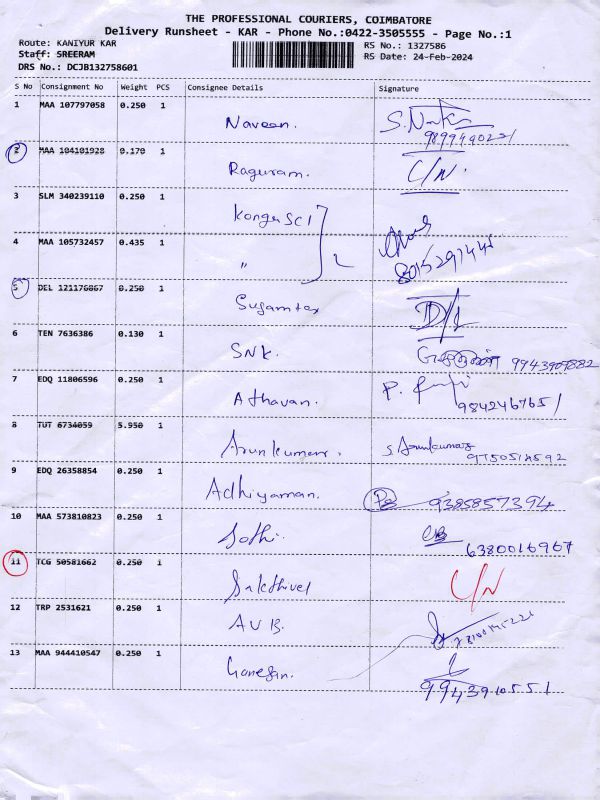 THE PROFESSIONAL COURIERS, COIMBATORE
Delivery Runsheet - KAR - Phone No.:0422-3505555 - Page No.:1
Route: KANIYUR KAR
RS No.: 1327586
Staff: SREERAM
RS Date: 24-Feb-2024
DRS No.: DCJB132758601
S No Consignment No Weight PCS Consignee Details Signature
1 MAA 107797058 0.250 1 Naveen.
2 MAA 104101928 0.170 1 Raguram. C/N.
3 SLM 340239110 0.250 1 Kongu SCI
4 MAA 105732457 0.435 1 "
5 DEL 121176867 0.250 1 Sugamtex D/L
6 TEN 7636386 0.130 1 SNK. 9943909882
7 EDQ 11806596 0.250 1 Athavan. 9842467651
8 TUT 6734059 5.950 1 Arunkumar. S. Arunkumar 9750514592
9 EDQ 26358854 0.250 1 Adhiyaman. 9385857394
10 MAA 573810823 0.250 1 Sothi. 6380016967
11 TCG 50581662 0.250 1 Sakthivel C/N
12 TRP 2531621 0.250 1 AVB.
13 MAA 944410547 0.250 1 Ganesan. 9943910551